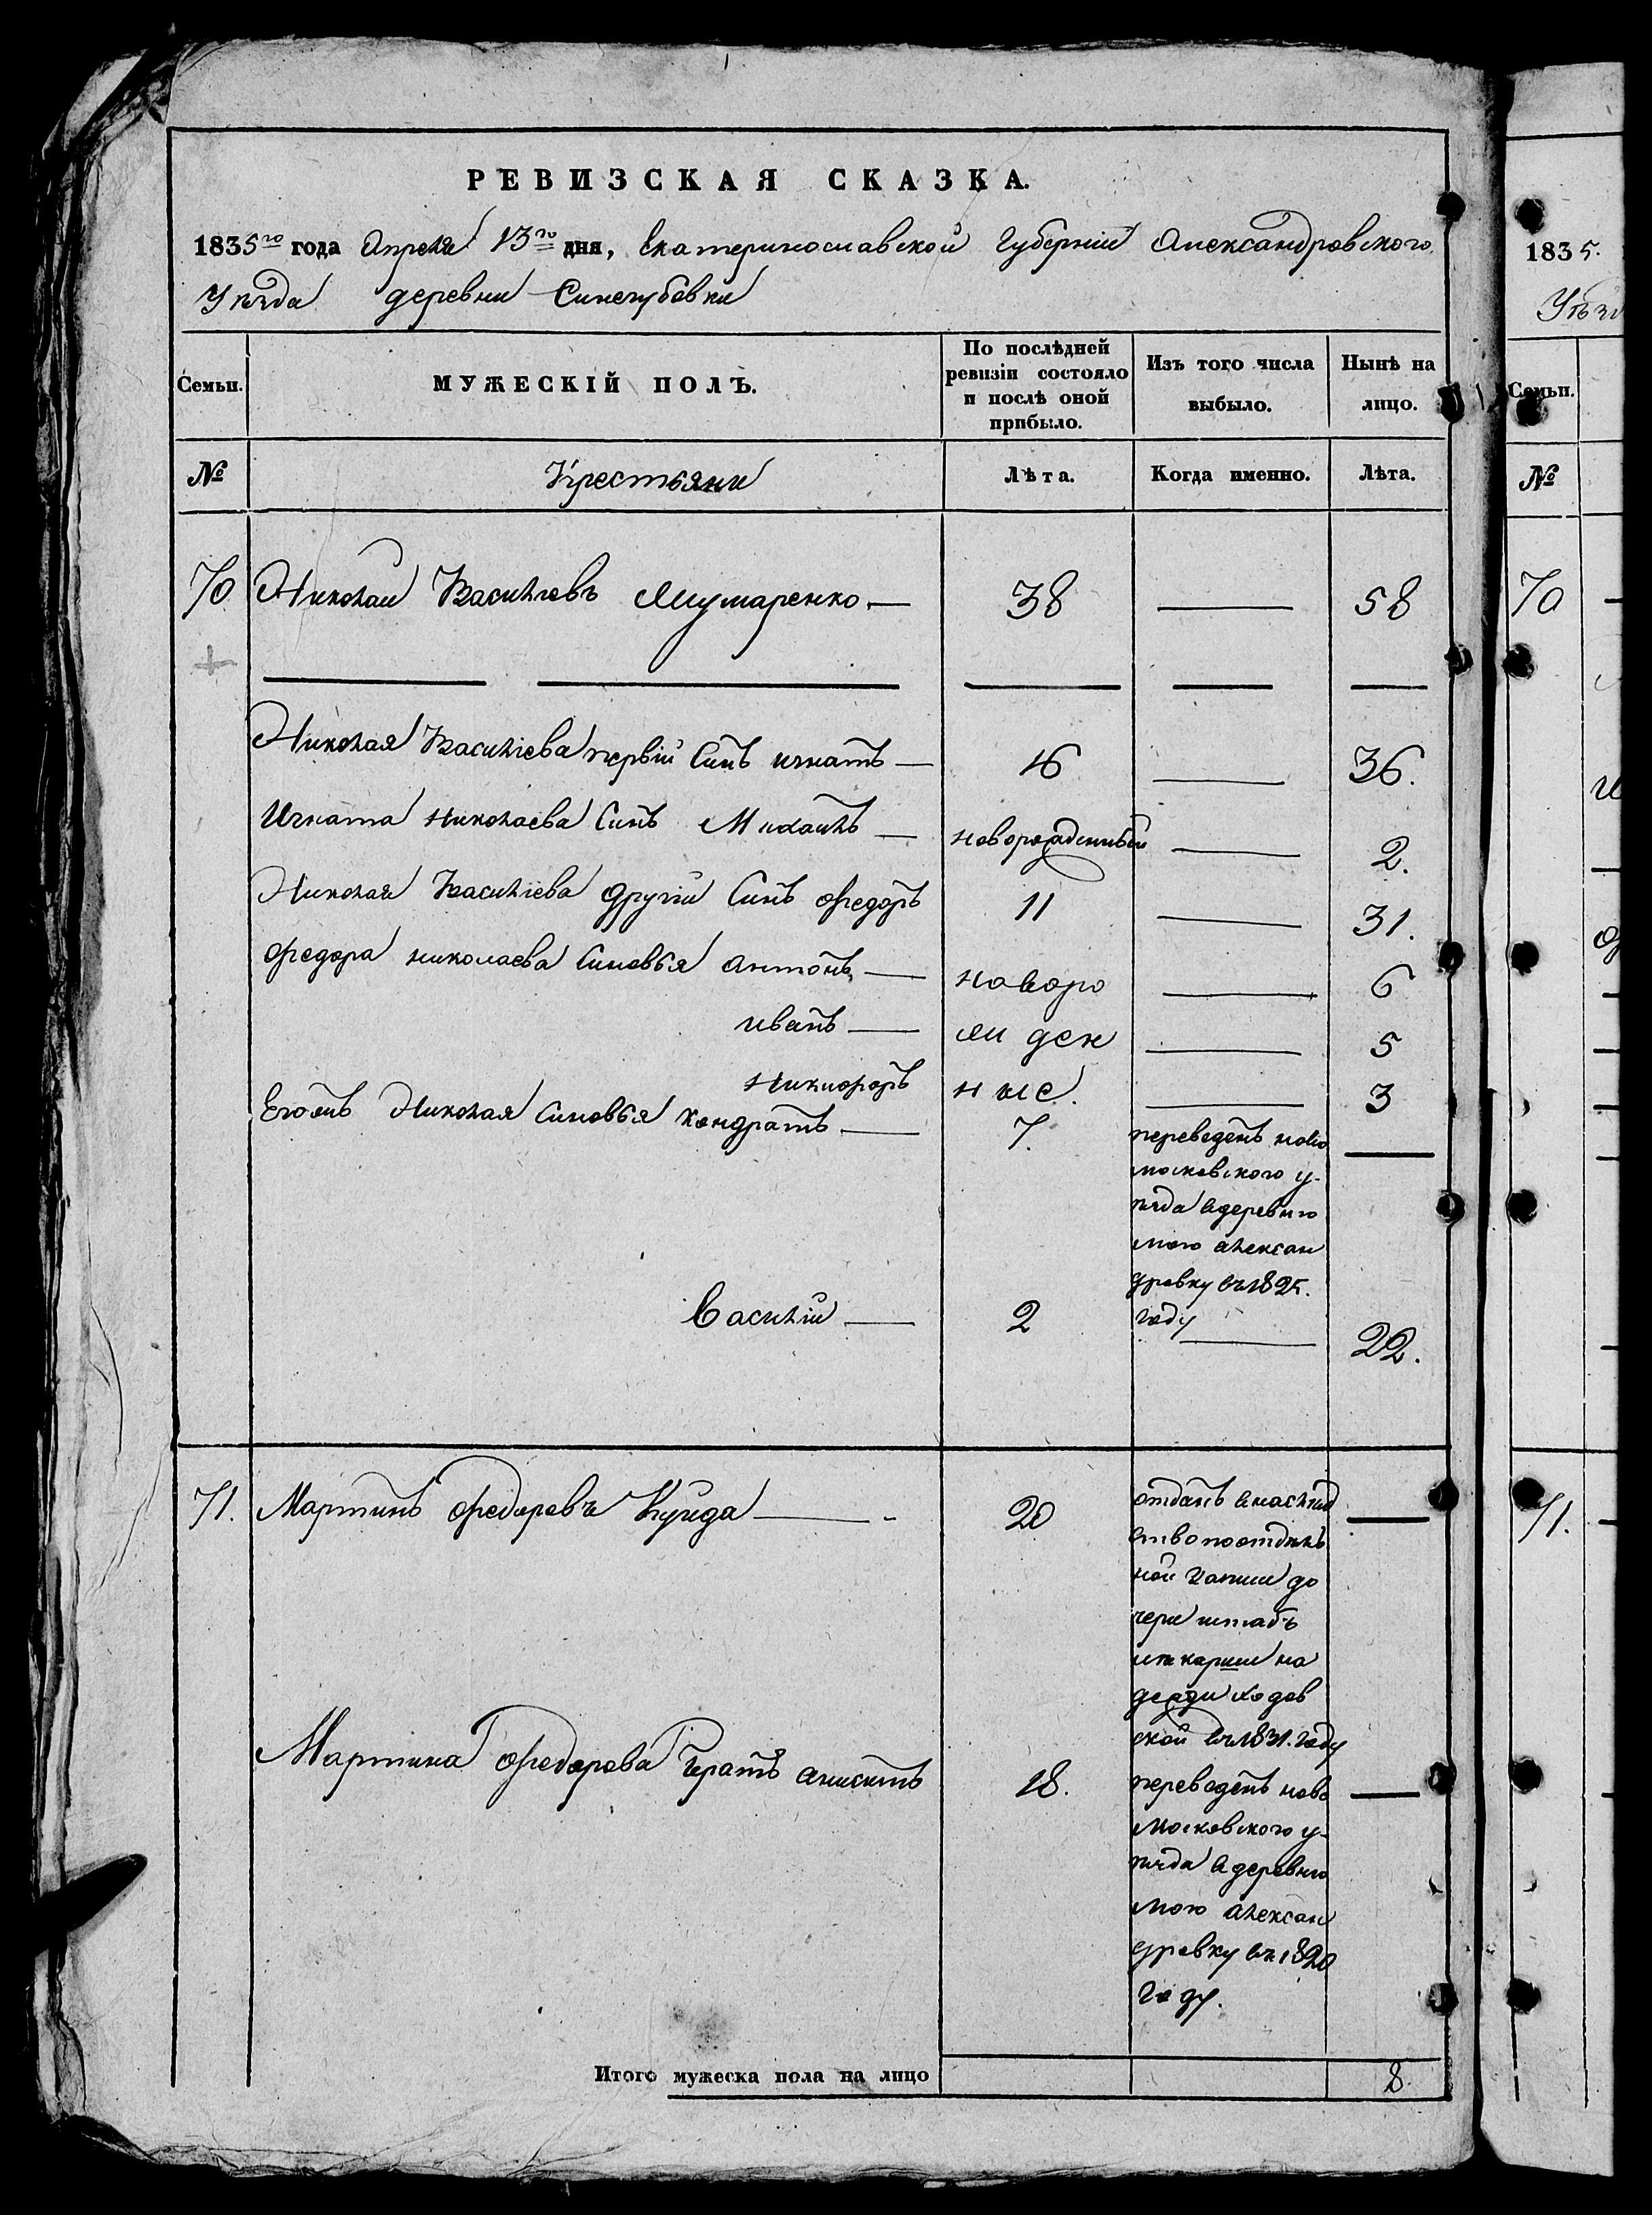 РЕВИЗСКАЯ СКАЗКА.
1835го года Апреля 13го дня, Екатеринославской Губернии Александровского
Уезда деревни Синегубовки
Семьи.
МУЖЕСКІЙ ПОЛЪ.
По послѣдней ревизіи состояло и послѣ оной прибыло.
Изъ того числа выбыло.
Нынѣ на лицо.
№
Крестьяни
Лѣта.
Когда именно.
Лѣта.
70 Николай Васильевъ 38 58
Николая Василіева первій Синъ игнатъ 16 36.
Игната николаева Синъ Михаилъ новорожденный 2.
Николая Василіева другій Синъ Федоръ 11 31.
Федора николаева Синовья Антонъ новоро 6
иванъ жден 5
Никифоръ ные. 3
Егожъ Николая Синовья Кондратъ 7. переведенъ ново
московского у-
езда вдеревню
мою алексан
дровку въ 1825.
году
Василій 2 22.
71. Мартинъ Федоровъ Куцда 20 отданъ внаслед
ство поотдель
ной записи до
чери штабъ
на
дежди
ской въ 1831. году
Мартина Федорова братъ 18. переведенъ ново
московского у-
езда вдеревню
мою алексан
дровку въ 1820
году.
Итого мужеска пола на лицо 8.
1835.
Уѣзд
Семьи.
№
70
71.